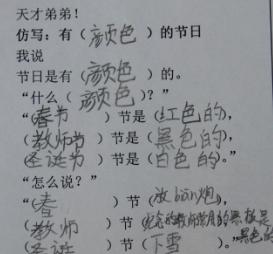 天才弟弟！
仿写：有（颜色）的节日
我说
节日是有（颜色）的。
“什么（颜色）？”
“（春节）节是（红色的），
（教师节）节是（黑色的），
（圣诞节）节是（白色的）。”
“怎么说？”
“（春）节（放bian炮），
（教师）节（老师的黑板是黑色的
（圣诞）节（下雪）。”